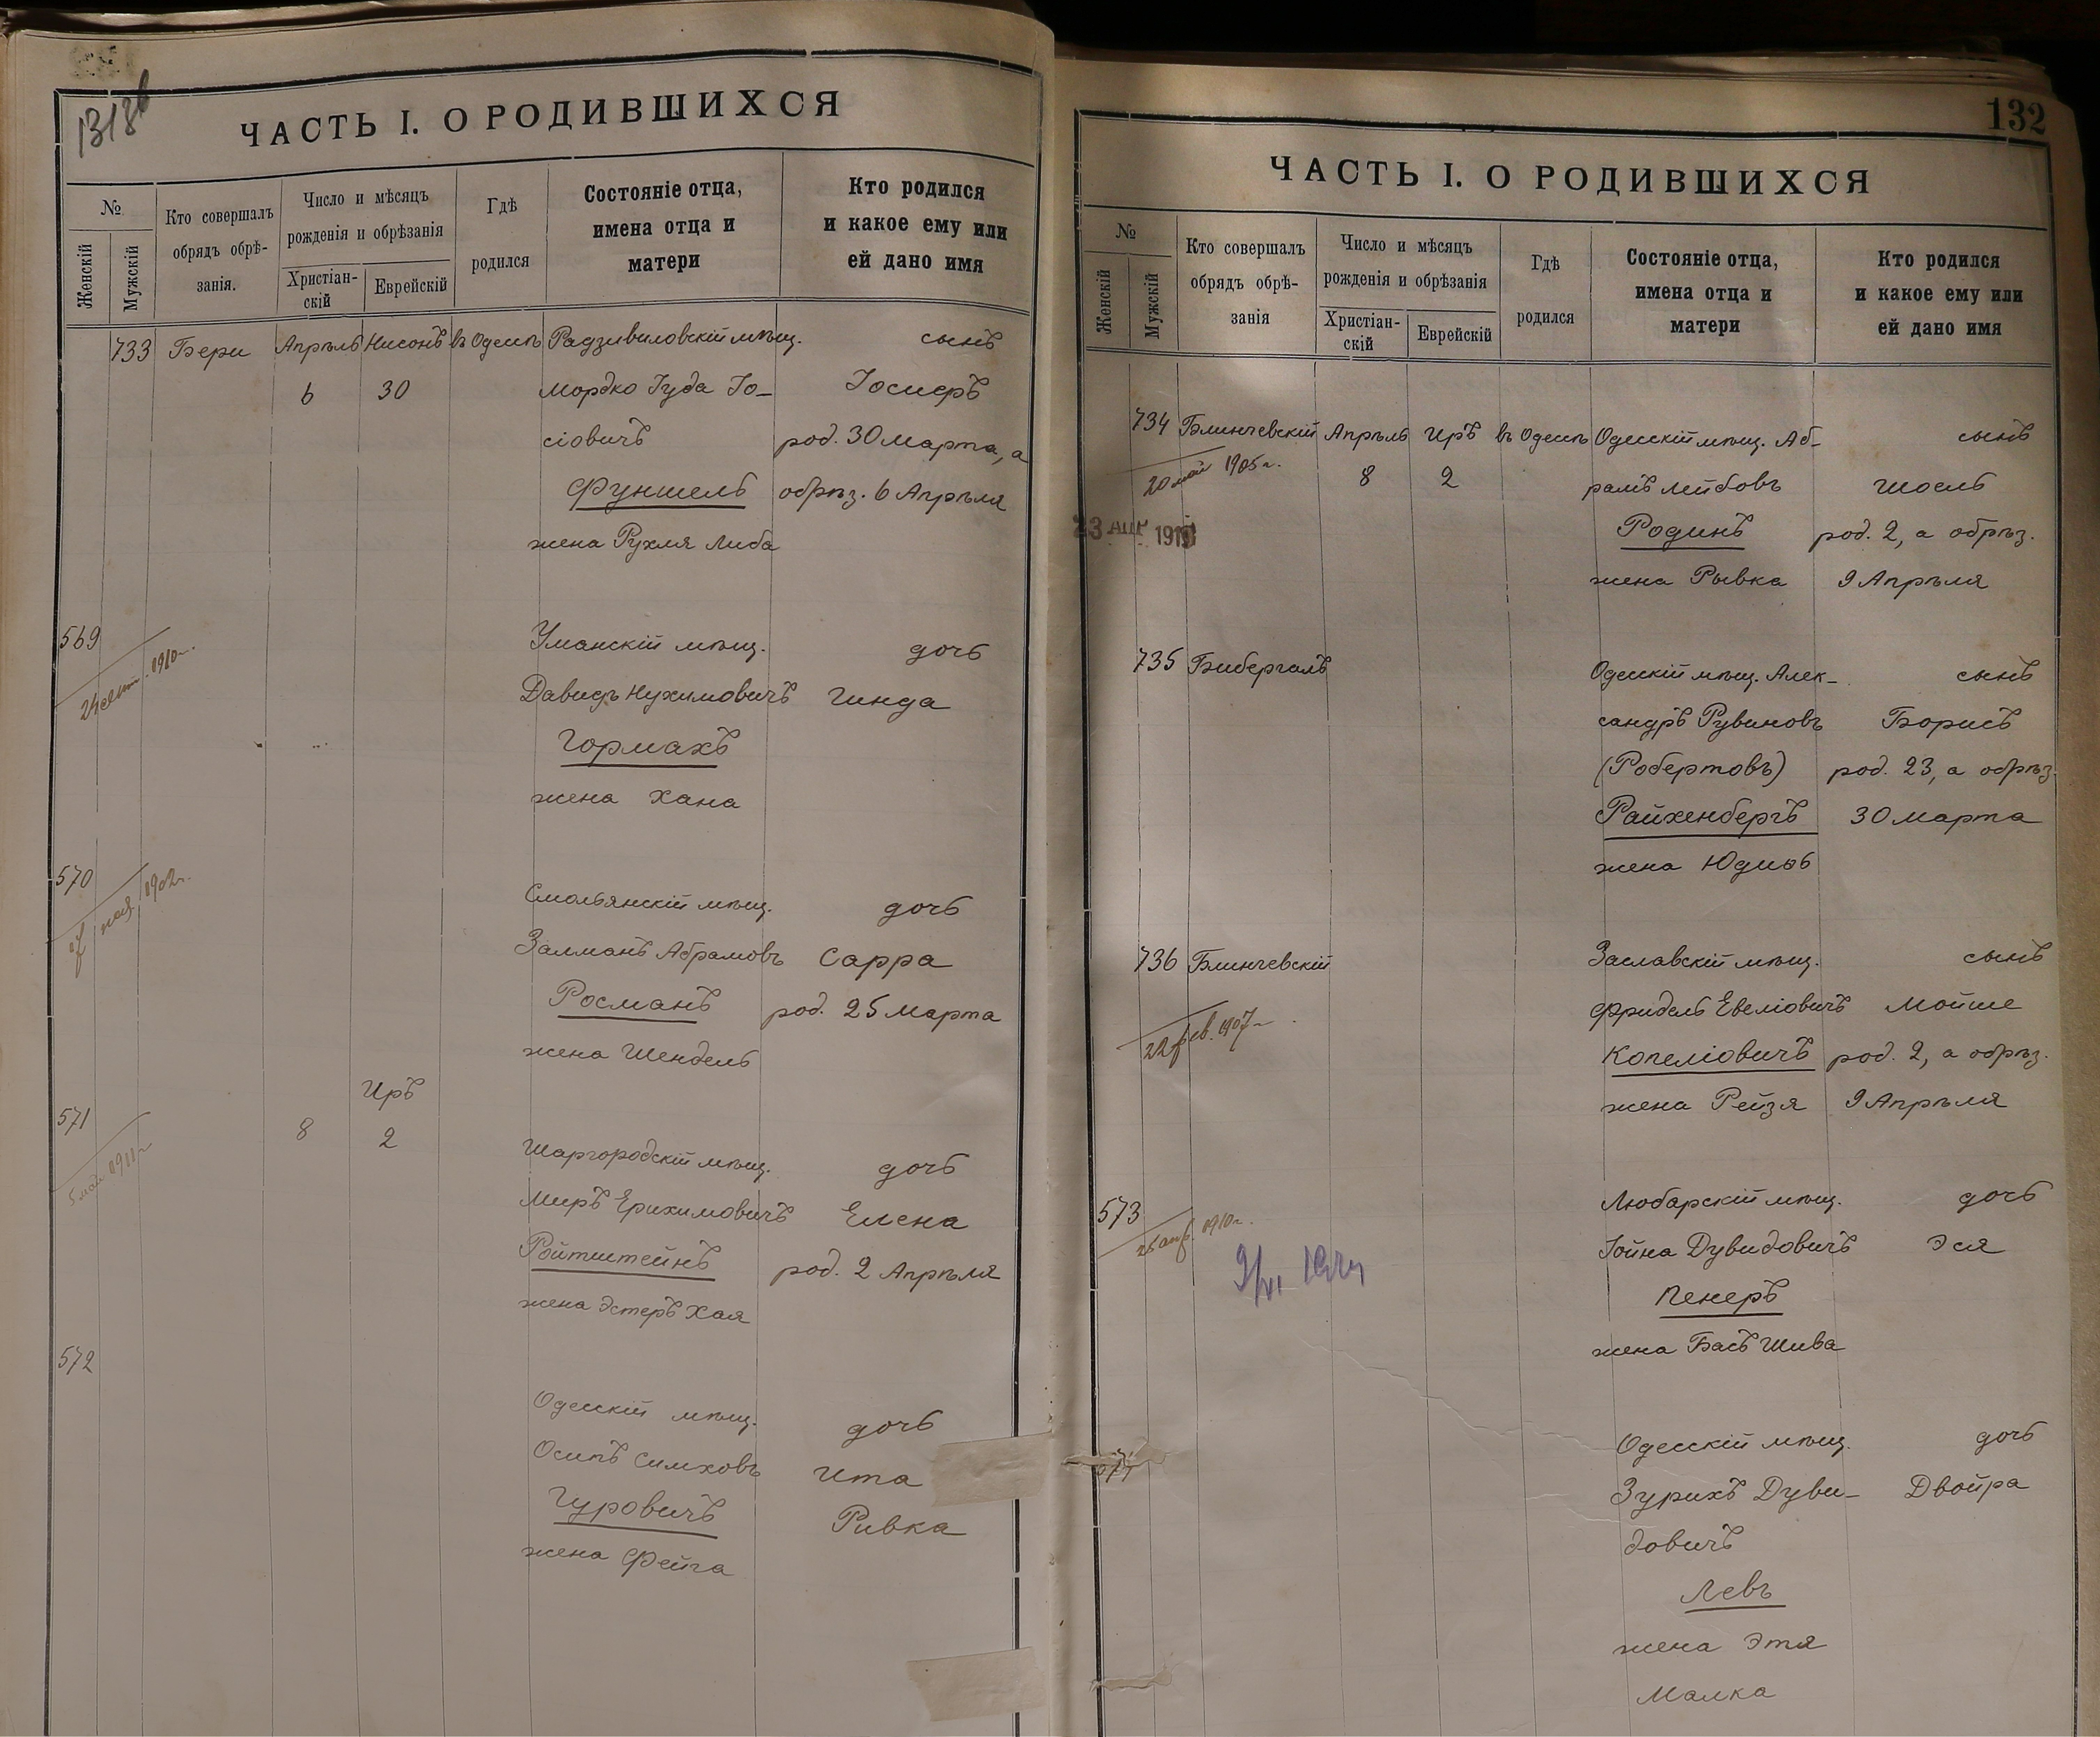 131об
ЧАСТЬ I. О РОДИВШИХСЯ
№
Женскій
Мужскій
Кто совершалъ
обрядъ обрѣ-
занія.
Число и мѣсяцъ
рожденія и обрѣзанія
Христіан-
скій
Еврейскій
Гдѣ
родился
Состояніе отца,
имена отца и
матери
Кто родился
и какое ему или
ей дано имя
733 Бери Апрѣль Нисонъ въ Одессѣ Радзивиловскій мѣщ. сынъ
6 30 Мордко Іуда Іо- Іосифъ
сіовичъ род. 30 Марта, а
Функель обрѣз. 6 Апрѣля
жена Рухля Либа
569 Уманскій мѣщ. дочь
24 сент. 1910 г. Давидъ Нухимовичъ Гинда
Гормахъ
жена Хана
570 Смольянскій мѣщ. дочь
1902 г. Залманъ Абрамовъ Сарра
Росманъ род. 25 Марта
жена Шендель
Иръ
571 8 2 Шаргородскій мѣщ. дочь
5 май 1911 г. Меиръ Ерихимовичъ Елена
Ройтштейнъ род. 2 Апрѣля
жена Эстеръ Хая
572 Одесскій мѣщ. дочь
Осипъ Симховъ Ита
Гуровичъ Ривка
жена Фейга
132
ЧАСТЬ I. О РОДИВШИХСЯ
№
Женскій
Мужскій
Кто совершалъ
обрядъ обрѣ-
занія
Число и мѣсяцъ
рожденія и обрѣзанія
Христіан-
скій
Еврейскій
Гдѣ
родился
Состояніе отца,
имена отца и
матери
Кто родился
и какое ему или
ей дано имя
734 Блинчевскій Апрѣль Иръ въ Одессѣ Одесскій мѣщ. Аб- сынъ
20 май 1905 г. 8 2 рамъ Лейбовъ Шоель
23 АПР Родинъ род. 2, а обрѣз.
жена Рывка 9 Апрѣля
735 Бибергалъ Одесскій мѣщ. Алек- сынъ
сандръ Рувиновъ Борисъ
(Робертовъ) род. 23, а обрѣз.
Райхенбергъ 30 Марта
жена Юдиѳь
736 Блинчевскій Заславскій мѣщ. сынъ
Фридель Евеліовичъ Мойше
22 фев. 1907 г. Копеліовичъ род. 2, а обрѣз.
жена Рейзя 9 Апрѣля
573 Любарскій мѣщ. дочь
1910 г. Іойна Дувидовичъ Эся
Пенеръ
жена Басъ Шива
Одесскій мѣщ. дочь
Зурихъ Дуви- Двойра
довичъ
Левъ
жена Этя
Малка